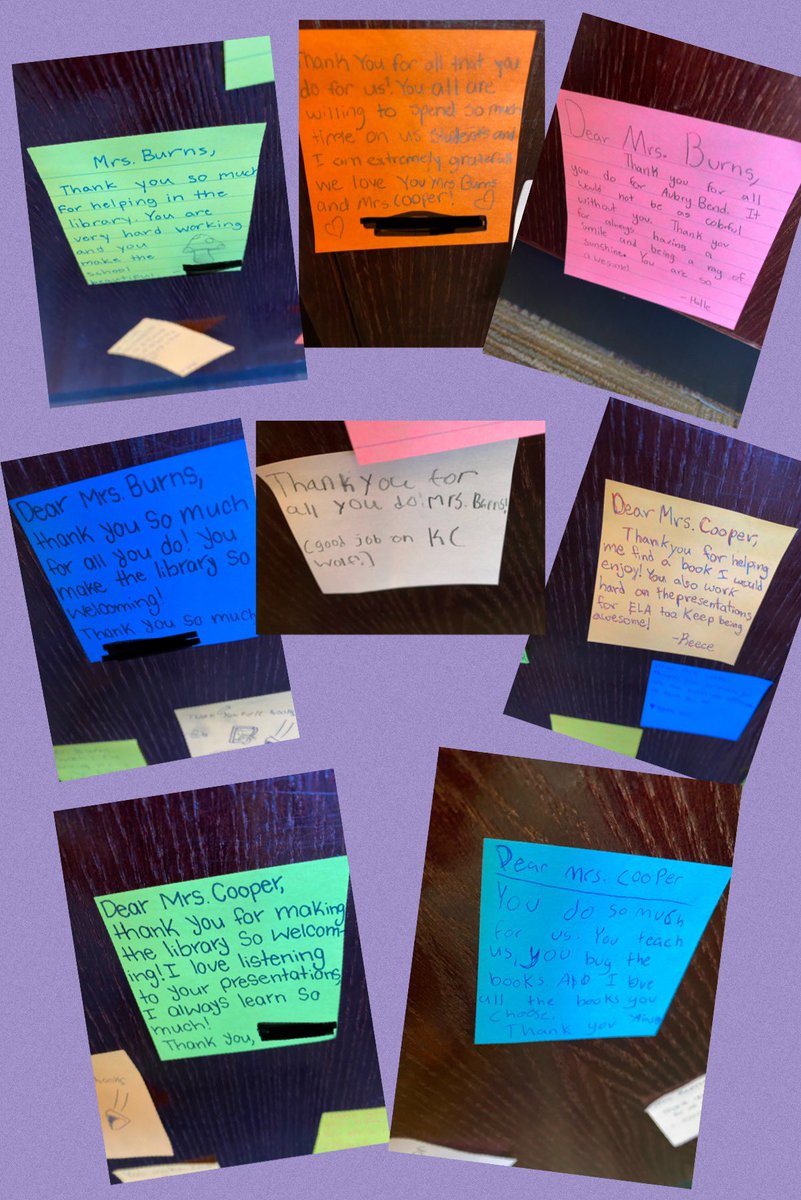 Mrs. Burns,
Thank you so much
for helping in the
library. You are
very hard working
and you
make the
school
beautiful.
Thank You for all that you
do for us! You all are
willing to spend so much
time on us Students and
I am extremely gratefull
we love You Mrs Burns
and Mrs. Cooper!
Dear Mrs. Burns,
Thank you for all
you do for Aubry Bend. It
would not be as colorful
without you. Thank you
for always having a
smile and being a ray of
sunshine. You are so
awesome!
- Halle
Dear Mrs. Burns,
thank you so much
for all you do! You
make the library so
welcoming!
Thank you so much
Thankyou for
all you do! Mrs. Burns!
(good job on KC
Dear Mrs. Cooper,
Thankyou for helping
me find a book I would
enjoy! You also work
hard on the presentations
for ELA too. Keep being
awesome!
-Reece
Dear Mrs. Cooper,
thank you for making
the library so welcom-
ing! I love listening
to your presentations,
I always learn so
much!
Thank you,
Dear Mrs. Cooper
You do so much
for us. You teach
us, you bug the
books. AND I love
all the books you
choose.
Thank you